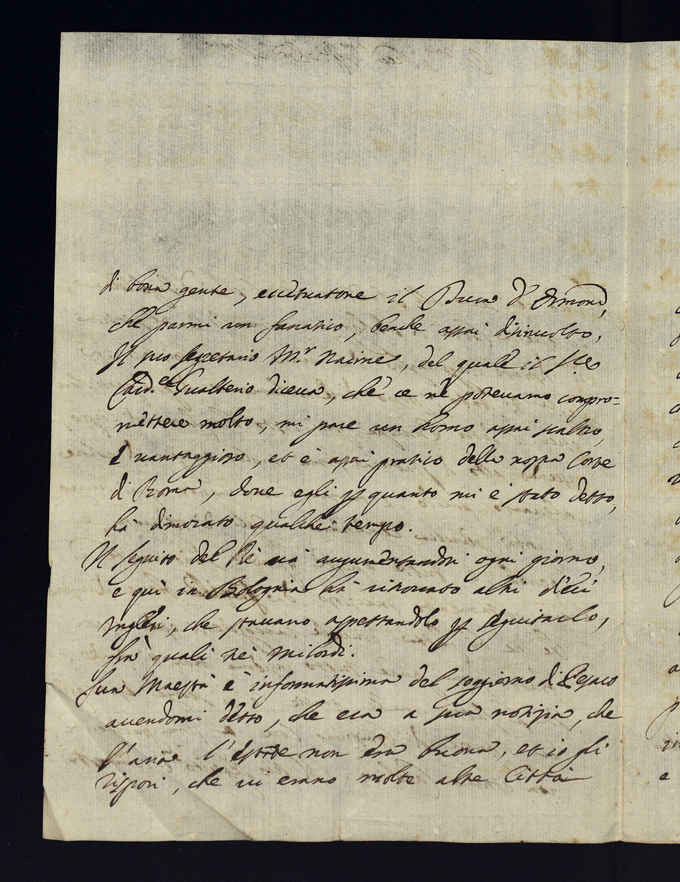 di bona gente, eccetuatone il Duca d'Ormond,
che parmi un fanatico, benche assai disinvolto,
Il suo segretario M.r Nairne, del quale il Sig.r
Card.le Gualterio diceva, che ce ne potevamo compro=
mettere molto, mi pare un homo assai scaltro,
e vantaggioso, et è assai pratico della nostra Corte
di Roma, dove egli p quanto mi è stato detto,
hà dimorato qualche tempo.
Il seguito del Rè và augumentandosi ogni giorno,
e quì in Bologna hà ritrovato altri dieci
Inglesi, che stavano aspettandolo p seguitarlo,
frà quali tre milordi.
Sua Maestà è informatissima del soggiorno di Pesaro
avendomi detto, che era a sua notizia, che
l'aria l'estate non era buona, et io gli
risposi, che vi erano molte altre Città